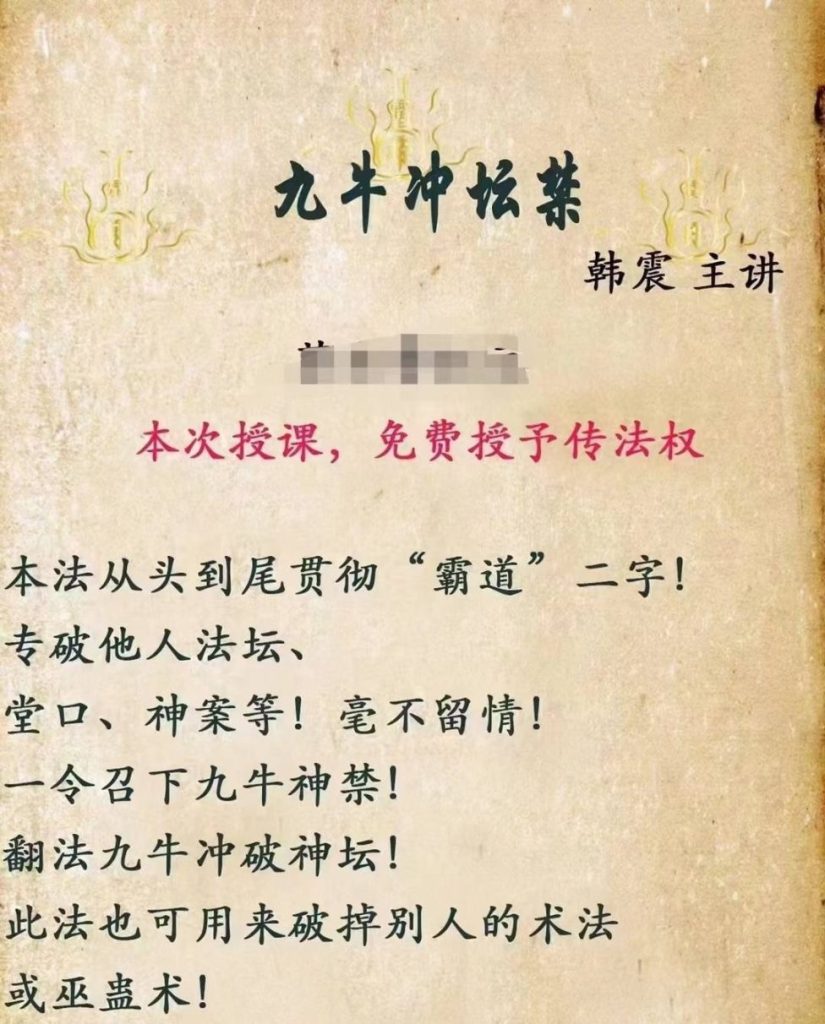 九牛冲坛禁
韩震 主讲
本次授课，免费授予传法权
本法从头到尾贯彻“霸道”二字！
专破他人法坛、
堂口、神案等！毫不留情！
一令召下九牛神禁！
翻法九牛冲破神坛！
此法也可用来破掉别人的术法
或巫蛊术！